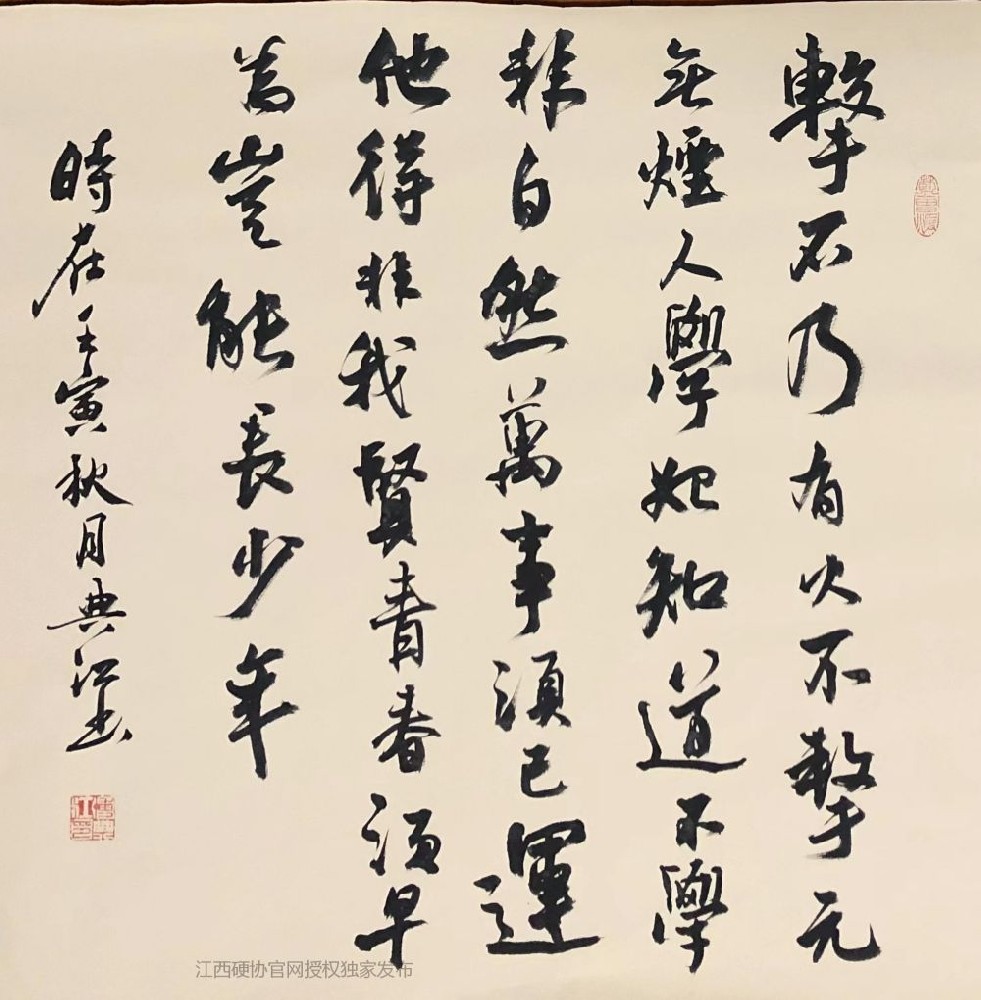 擊石乃有火不擊元
無煙人學始知道不學
非自然萬事須己運
他得非我賢青春須早
為豈能長少年
時在壬寅秋月典江書
江西硬协官网授权独家发布